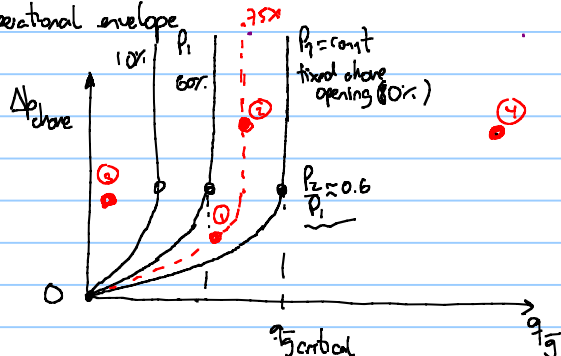 operational envelope
.75%
10%
P₁
60%
P₁ = const
fixed choke
opening (80%)
Δp choke
②
④
②
①
P₂/P₁ ≈ 0.6
0
q g̅ critical
q g̅